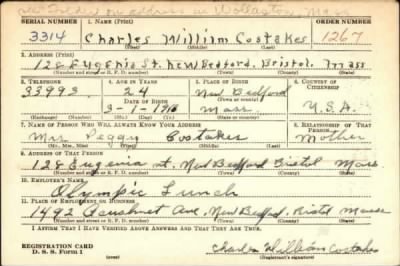 SERIAL NUMBER 1. Name (Print) ORDER NUMBER
3314 Charles Willim Costakes 1267
(First) (Middle) (Last)
2. Address (Print)
128 Eugenia St. New Bedford, Bristol, Mass
(Number and street or R. F. D. number) (Town) (County) (State)
3. Telephone 4. Age in Years 5. Place of Birth 6. Country of Citizenship
33993 24 New Bedford
Date of Birth (Town or county)
3-1-1916 Mass. U.S.A.
(Exchange) (Number) (Mo.) (Day) (Yr.) (State or country)
7. Name of Person Who Will Always Know Your Address 8. Relationship of That Person
Mrs. Peggy Costakes Mother
(Mr., Mrs., Miss) (First) (Middle) (Last)
9. Address of That Person
128 Eugenia st. New Bedford Bristol Mass
(Number and street or R. F. D. number) (Town) (County) (State)
10. Employer's Name
Olympic Lunch
11. Place of Employment or Business
1492 Acushnet Ave, New Bedford, Bristol Mass
(Number and street or R. F. D. number) (Town) (County) (State)
I Affirm That I Have Verified Above Answers and That They Are True.
REGISTRATION CARD
D. S. S. Form 1 Charles William Costakes
(over) (Registrant's signature)